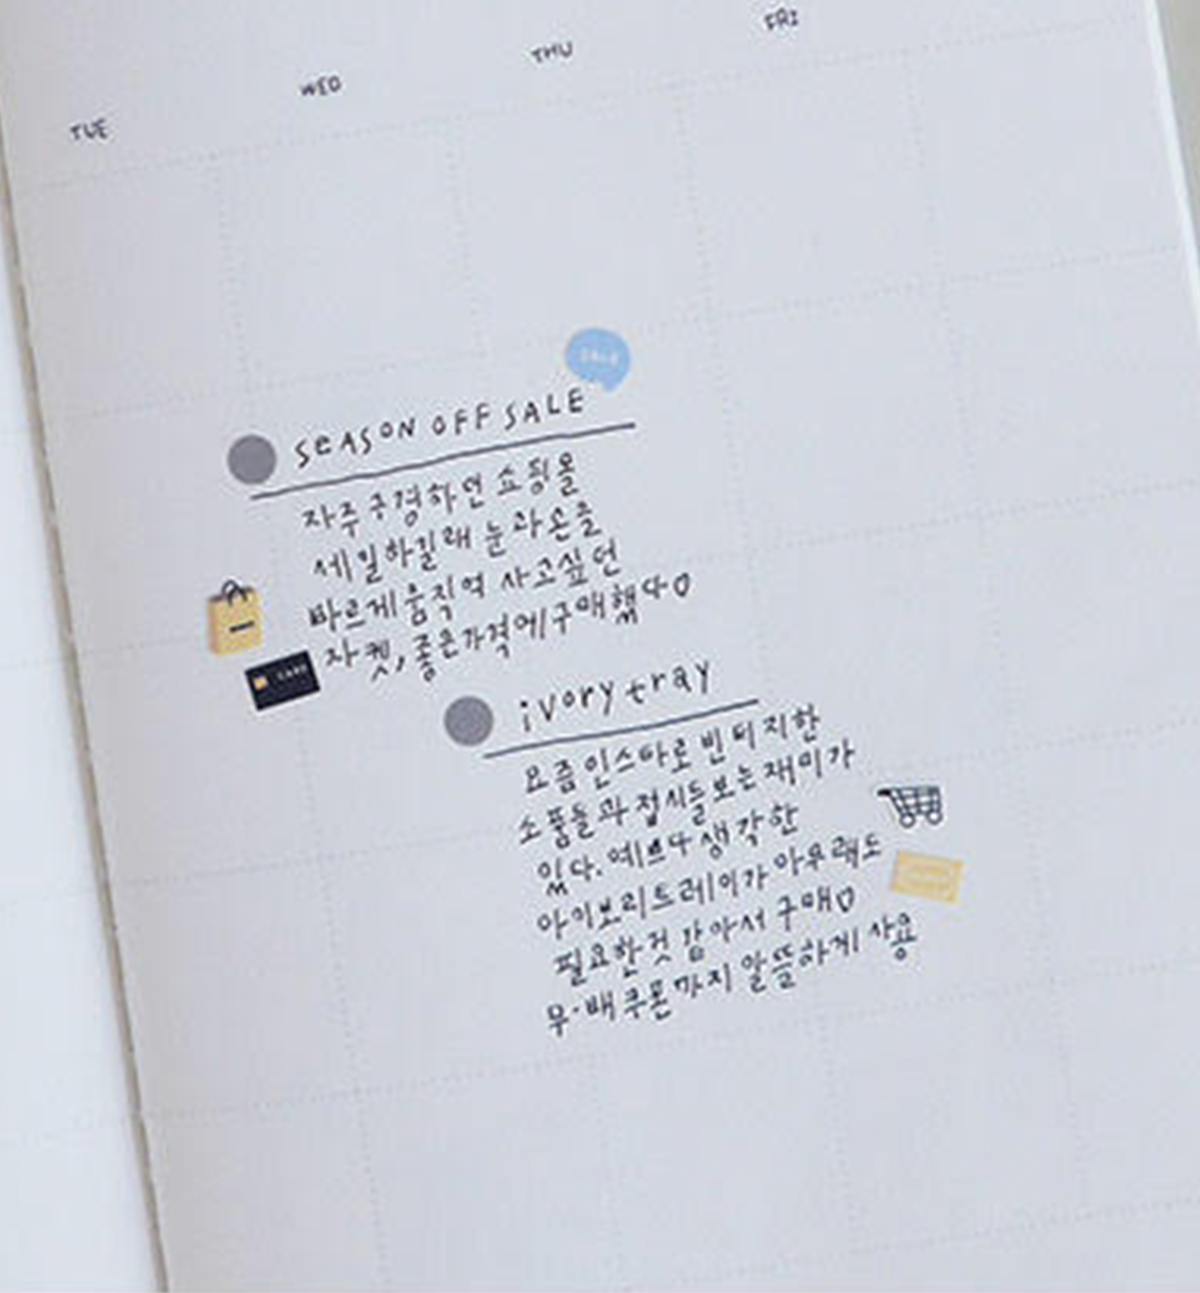 TUE
WED
THU
FRI
SALE
SEASON OFF SALE
자주 구경하던 쇼핑몰
세일하길래 눈과 손을
바르게 움직여 사고싶던
자켓, 좋은가격에 구매했다♡
CARD
ivory tray
요즘 인스타로 빈티지한
소품들과 접시들 보는 재미가
있다. 예쁘다 생각한
아이보리트레이가 아무래도
필요한것 같아서 구매♡
무·배 쿠폰까지 알뜰하게 사용